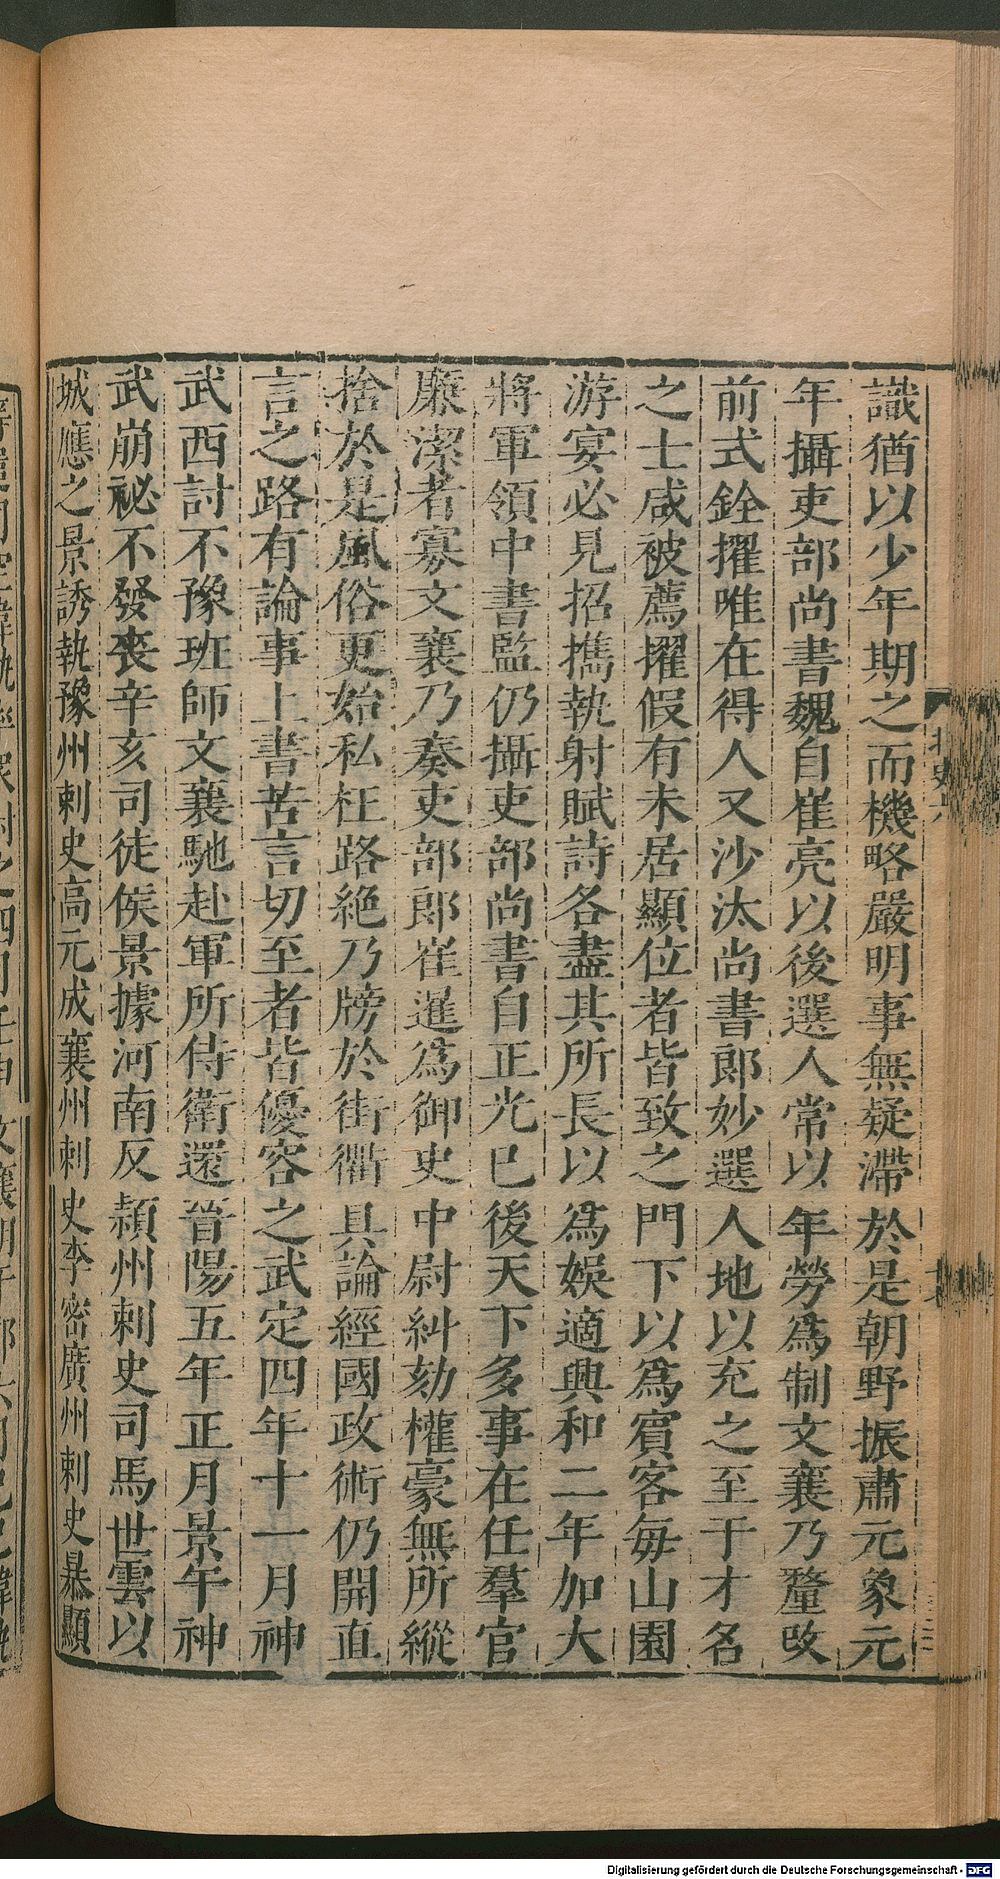 識猶以少年期之而機略嚴明事無疑滯於是朝野振肅元象元
年攝吏部尚書魏自崔亮以後選人常以年勞爲制文襄乃釐改
前式銓擢唯在得人又沙汰尚書郎妙選人地以充之至于才名
之士咸被薦擢假有未居顯位者皆致之門下以爲賓客每山園
游宴必見招攜執射賦詩各盡其所長以爲娛適興和二年加大
將軍領中書監仍攝吏部尚書自正光已後天下多事在任羣官
廉潔者寡文襄乃奏吏部郎崔暹爲御史中尉糾劾權豪無所縱
捨於是風俗更始私枉路絶乃牓於街衢具論經國政術仍開直
言之路有論事上書苦言切至者皆優容之武定四年十一月神
武西討不豫班師文襄馳赴軍所侍衛還晉陽五年正月景午神
武崩祕不發喪辛亥司徒侯景據河南反潁州刺史司馬世雲以
城應之景誘執豫州刺史高元成襄州刺史李密廣州刺史暴顯
Digitalisierung gefördert durch die Deutsche Forschungsgemeinschaft - DFG